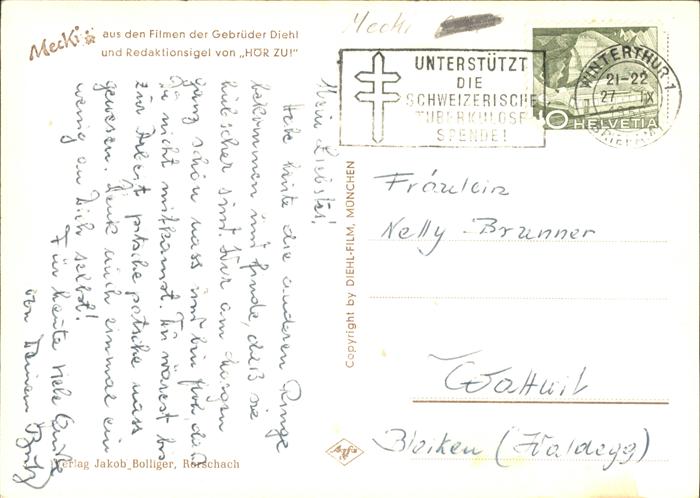 Mecki
aus den Filmen der Gebrüder Diehl
und Redaktionsigel von „HÖR ZU!"
Mecki
UNTERSTÜTZT
DIE
SCHWEIZERISCHE
TUBERKULOSE
SPENDE!
WINTERTHUR 1
21-22
27. IX
10 HELVETIA
Mein Liebster!
Habe heute die anderen Ringe
bekommen und finde, daß sie
hübscher sind. War am Morgen
ganz schön nass und bin froh, daß
Du nicht mitkamst. Du wärest bis
zur Arbeit pitsche patsche nass
gewesen. Denk auch einmal ein
wenig an Dich selbst!
Für heute viele Grüße
von Deinem
Copyright by DIEHL-FILM, MÜNCHEN
Fräulein
Nelly Brunner
Wattwil
Bleiken (Haldegg)
Agfa
Verlag Jakob Bolliger, Rorschach